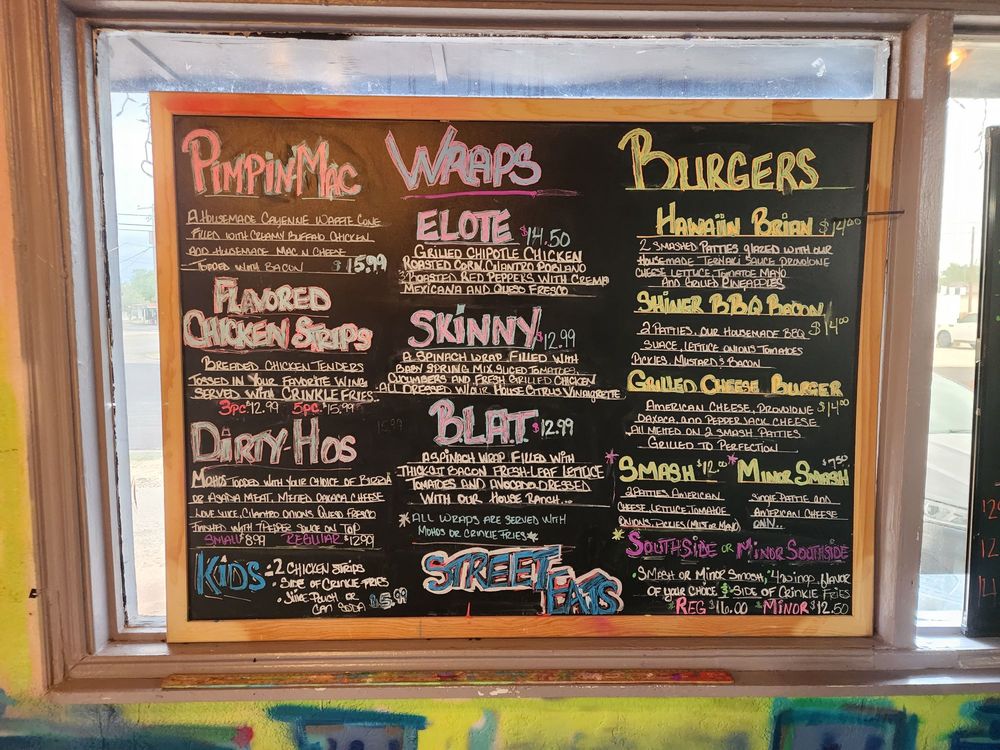 PIMPIN MAC
A HOUSEMADE CAYENNE WAFFLE CONE
FILLED WITH CREAMY BUFFALO CHICKEN
AND HOUSEMADE MAC N CHEESE
TOPPED WITH BACON $15.99
FLAVORED
CHICKEN STRIPS
BREADED CHICKEN TENDERS
TOSSED IN YOUR FAVORITE WING
SERVED WITH CRINKLE FRIES
3PC $12.99 5PC $15.99
DIRTY-HOS
MOHOS TOPPED WITH YOUR CHOICE OF
OR ASADA MEAT, MELTED OAXACA CHEESE
LOVE JUICE, CILANTRO ONIONS, QUESO FRESCO
FINISHED WITH SAUCE ON TOP
SMALL $8.99 REGULAR $12.99
KIDS
• 2 CHICKEN STRIPS
• SIDE OF CRINKLE FRIES
• JUICE POUCH OR
CAN SODA $5.99
WRAPS
ELOTE $14.50
GRILLED CHIPOTLE CHICKEN
ROASTED CORN, CILANTRO POBLANO
TOASTED RED PEPPERS WITH CREMA
MEXICANA AND QUESO FRESCO
SKINNY $12.99
A SPINACH WRAP FILLED WITH
BABY SPRING MIX, SLICED TOMATOES,
CUCUMBERS AND FRESH GRILLED CHICKEN
ALL DRESSED W/OUR HOUSE CITRUS VINAIGRETTE
B.L.A.T. $12.99
A SPINACH WRAP FILLED WITH
THICKCUT BACON FRESH-LEAF LETTUCE
TOMATOES AND AVOCADO DRESSED
WITH OUR HOUSE RANCH...
*ALL WRAPS ARE SERVED WITH
MOHOS OR CRINKLE FRIES*
STREET
EATS
BURGERS
HAWAIIN BRIAN $14.00
2 SMASHED PATTIES GLAZED WITH OUR
HOUSEMADE TERIYAKI SAUCE PROVLONE
CHEESE, LETTUCE, TOMATOE MAYO
AND GRILLED PINEAPPLES
SHINER BBQ BACON $14.00
2 PATTIES, OUR HOUSEMADE BBQ
SUACE, LETTUCE ONIONS TOMATOES
PICKLES, MUSTARD & BACON
GRILLED CHEESE BURGER $14.00
AMERICAN CHEESE, PROVLONE
OAXACA, AND PEPPERJACK CHEESE
ALL MELTED ON 2 SMASH PATTIES
GRILLED TO PERFECTION
*SMASH $12.00
2 PATTIES AMERICAN
CHEESE, LETTUCE, TOMATOE
ONIONS, PICKLES (MUST OR MAYO)
*MINOR SMASH $7.50
SINGLE PATTIE AND
AMERICAN CHEESE
ONLY..
*SOUTHSIDE OR MINOR SOUTHSIDE
• SMASH OR MINOR SMOOSH, 4 WINGS, FLAVOR
OF YOUR CHOICE & SIDE OF CRINKLE FRIES
• REG $16.00 • MINOR $12.50